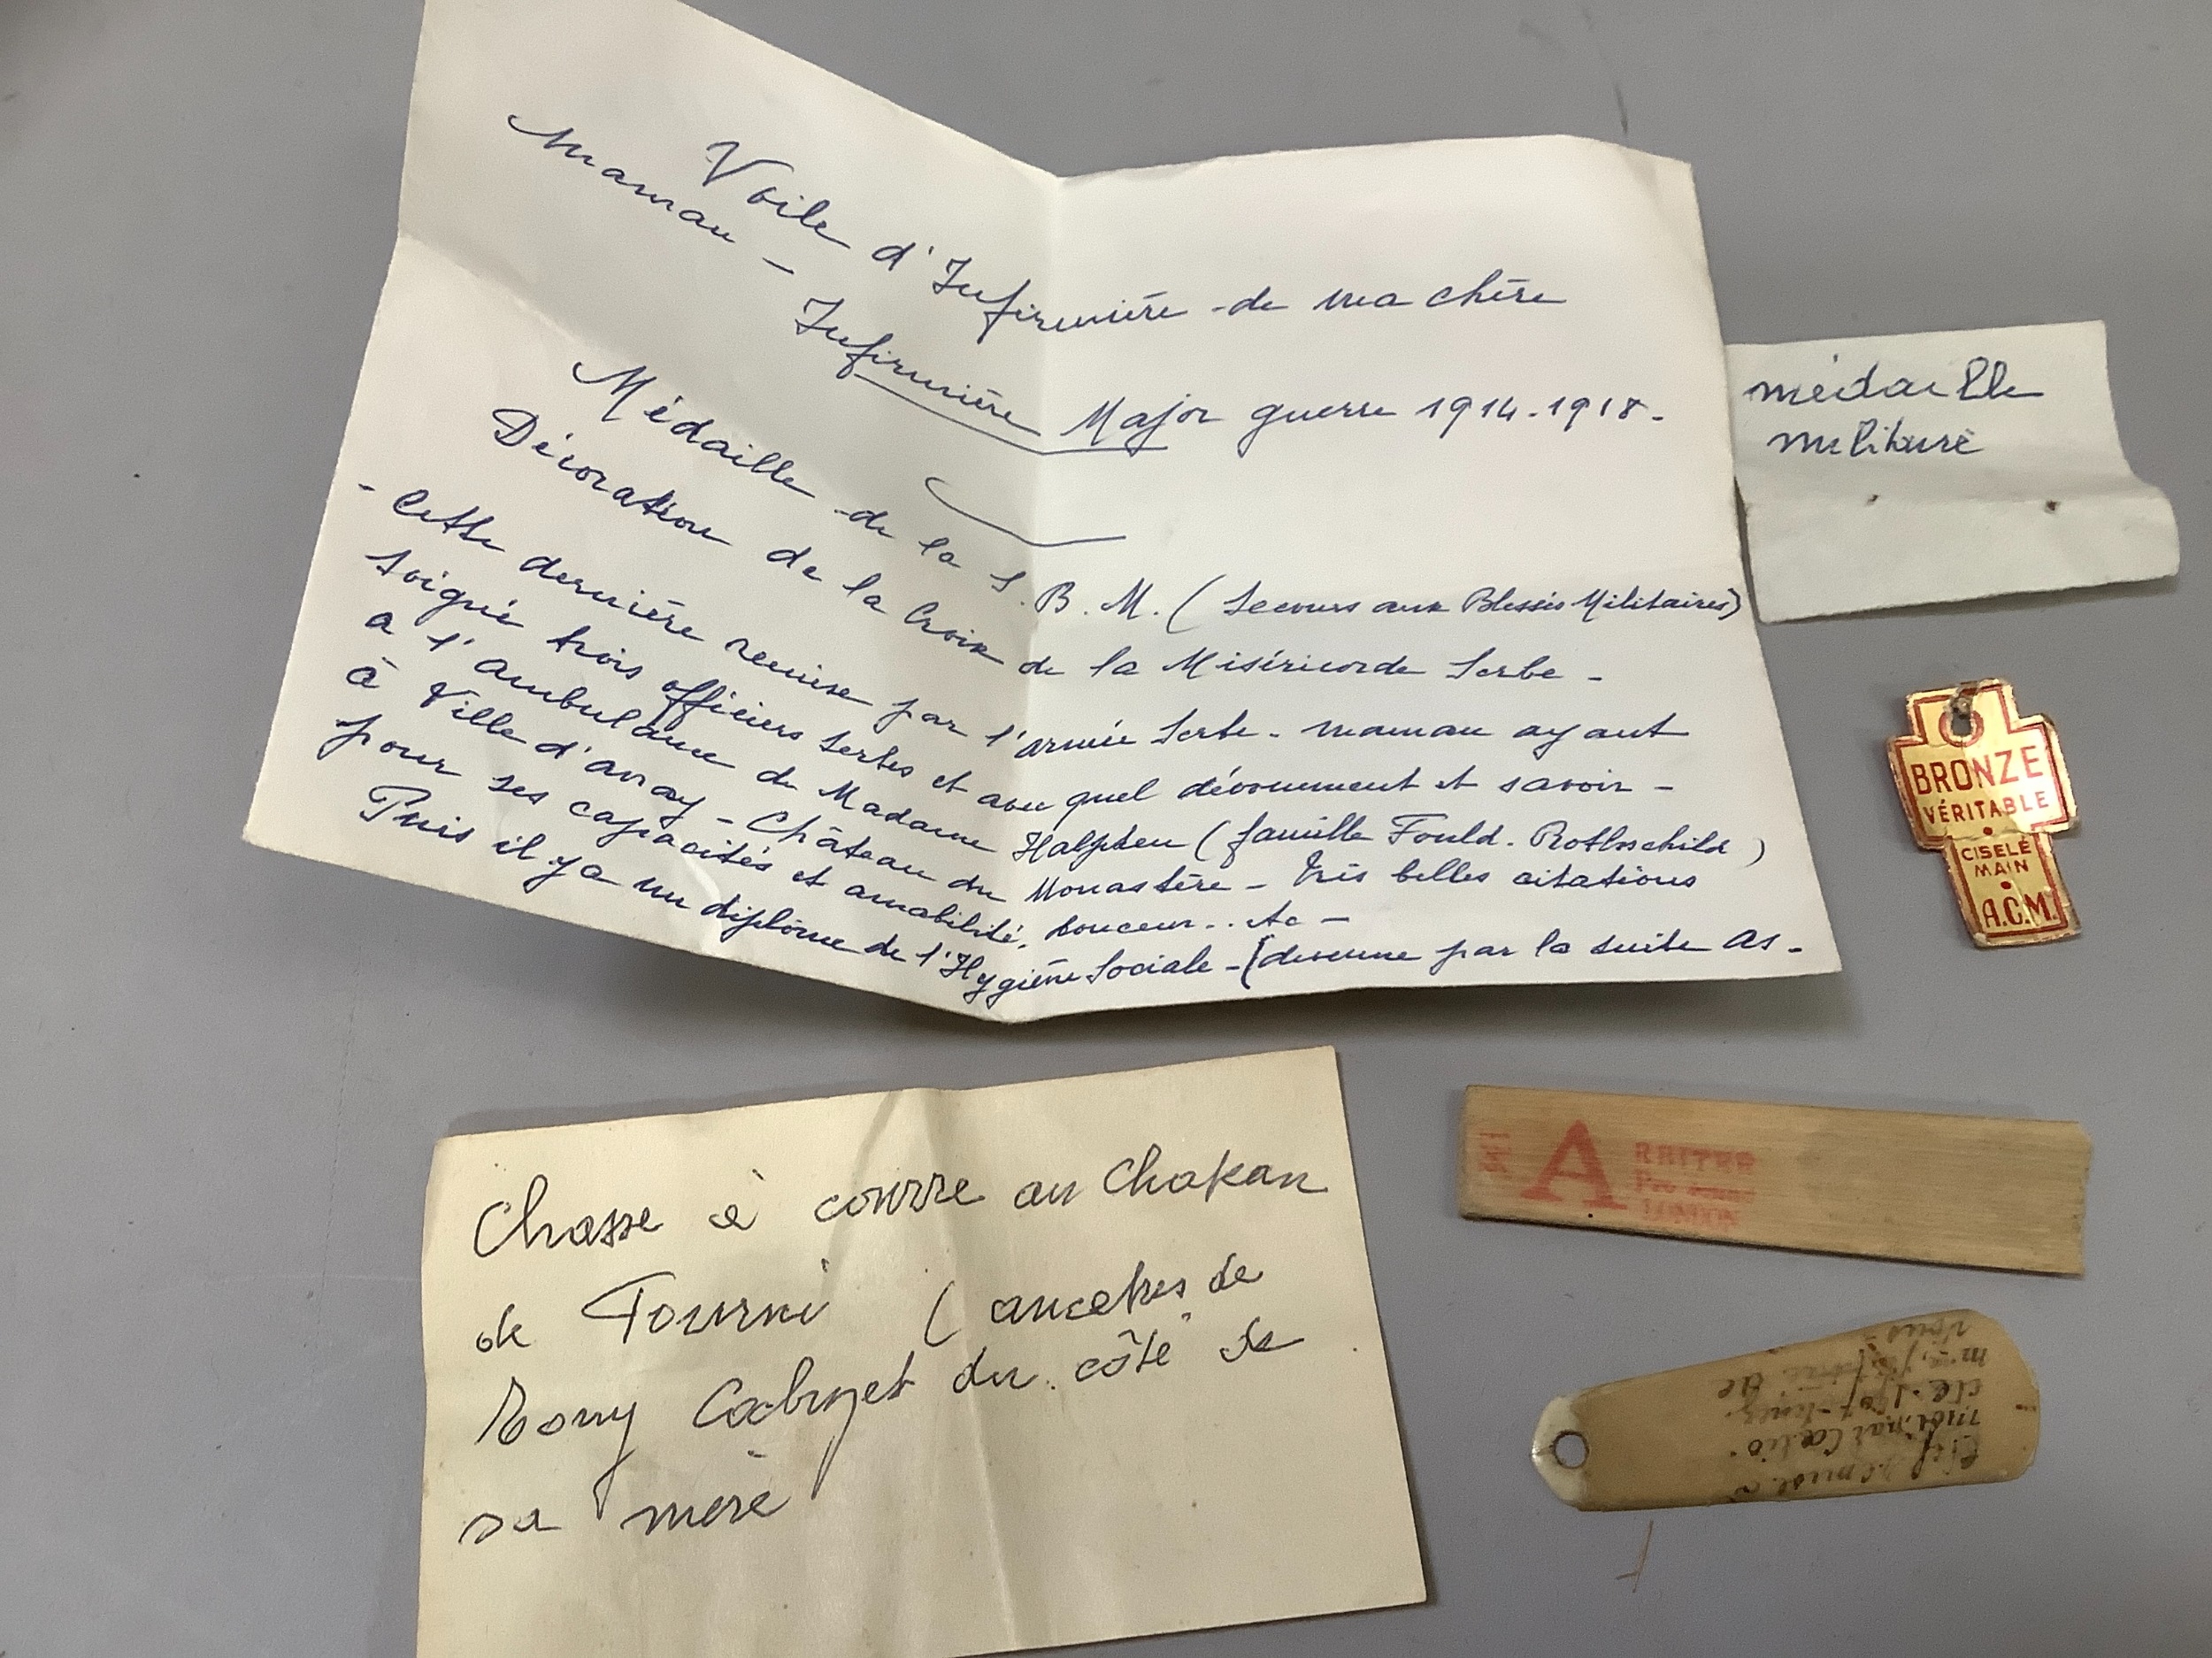 Voile d'Infirmière de ma chère
maman -
Infirmière Major guerre 1914-1918.
Médaille de la S.B.M. (Secours aux Blessés Militaires)
Décoration de la Croix de la Miséricorde Serbe -
- Cette dernière remise par l'armée Serbe - maman ayant
soigné trois officiers serbes et avec quel dévouement et savoir -
a l'ambulance de Madame Halphen (famille Fould-Rothschild)
à Ville d'avray - Château du Monastère - Très belles citations
pour ses capacités et amabilité, douceur.. etc -
Puis il y a un diplôme de l'Hygiène Sociale - (devenue par la suite As-
médaille
militaire
BRONZE
VÉRITABLE
CISELÉ
MAIN
A.C.M.
Chasse à courre au Chakan
de Fourni (ancetres de
Cabuzet du côté de
sa mère
A
LONDON